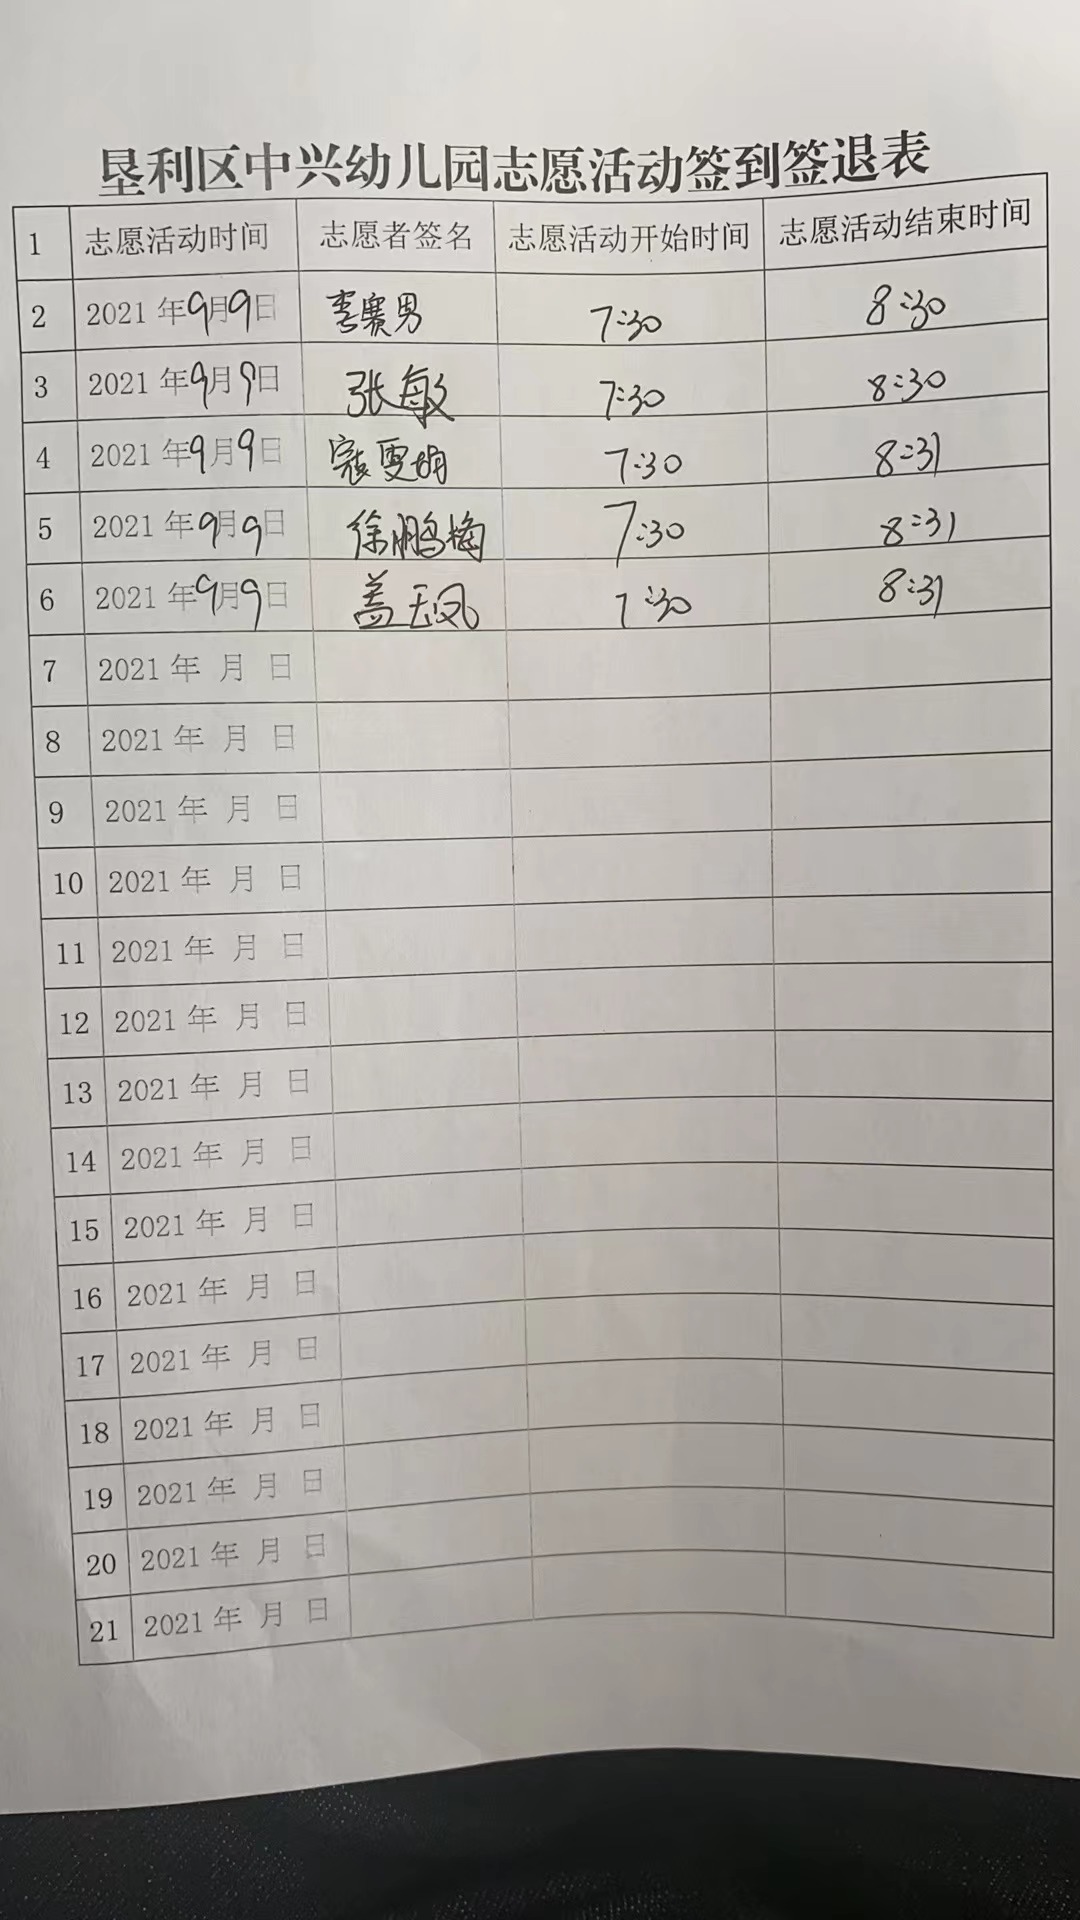 垦利区中兴幼儿园志愿活动签到签退表
1 志愿活动时间 志愿者签名 志愿活动开始时间 志愿活动结束时间
2 2021年9月9日 李赛男 7:30 8:30
3 2021年9月9日 张敏 7:30 8:30
4 2021年9月9日 寇雯娟 7:30 8:31
5 2021年9月9日 徐鹏梅 7:30 8:31
6 2021年9月9日 盖玉凤 7:30 8:31
7 2021年 月 日
8 2021年 月 日
9 2021年 月 日
10 2021年 月 日
11 2021年 月 日
12 2021年 月 日
13 2021年 月 日
14 2021年 月 日
15 2021年 月 日
16 2021年 月 日
17 2021年 月 日
18 2021年 月 日
19 2021年 月 日
20 2021年 月 日
21 2021年 月 日